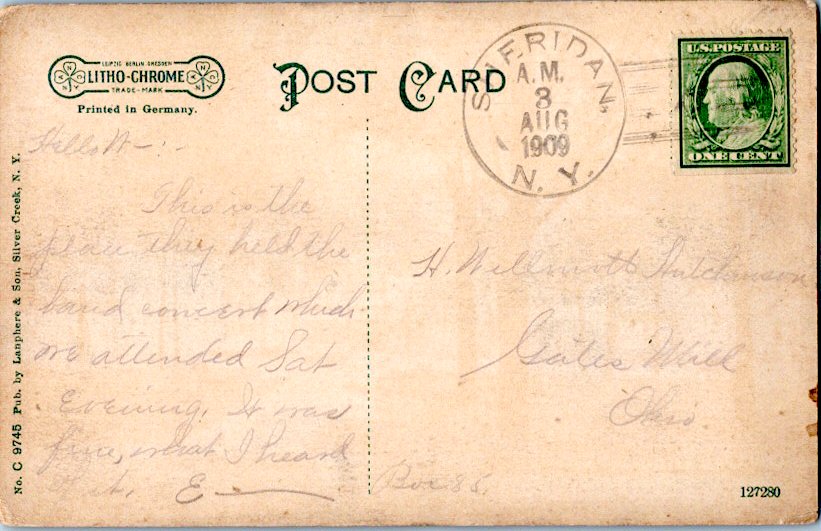 LEIPZIG BERLIN DRESDEN
LITHO-CHROME
TRADE-MARK
Printed in Germany.
POST CARD
SHERIDAN,
A.M.
3
AUG
1909
N. Y.
U.S. POSTAGE
ONE CENT
Hello
This is the
place they held the
band concert which
we attended Sat
Evening. It was
fine, what I heard
it. E
H. Willmott Hutchinson
Gates Mill
Ohio
Box 88.
No. C 9745 Pub. by Lanphere & Son, Silver Creek, N. Y.
127280